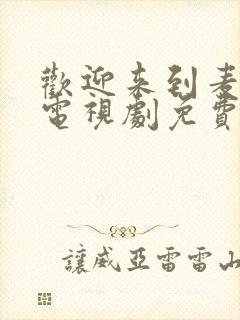 歡迎来到麦
電視劇免費
讓威亞雷雷山